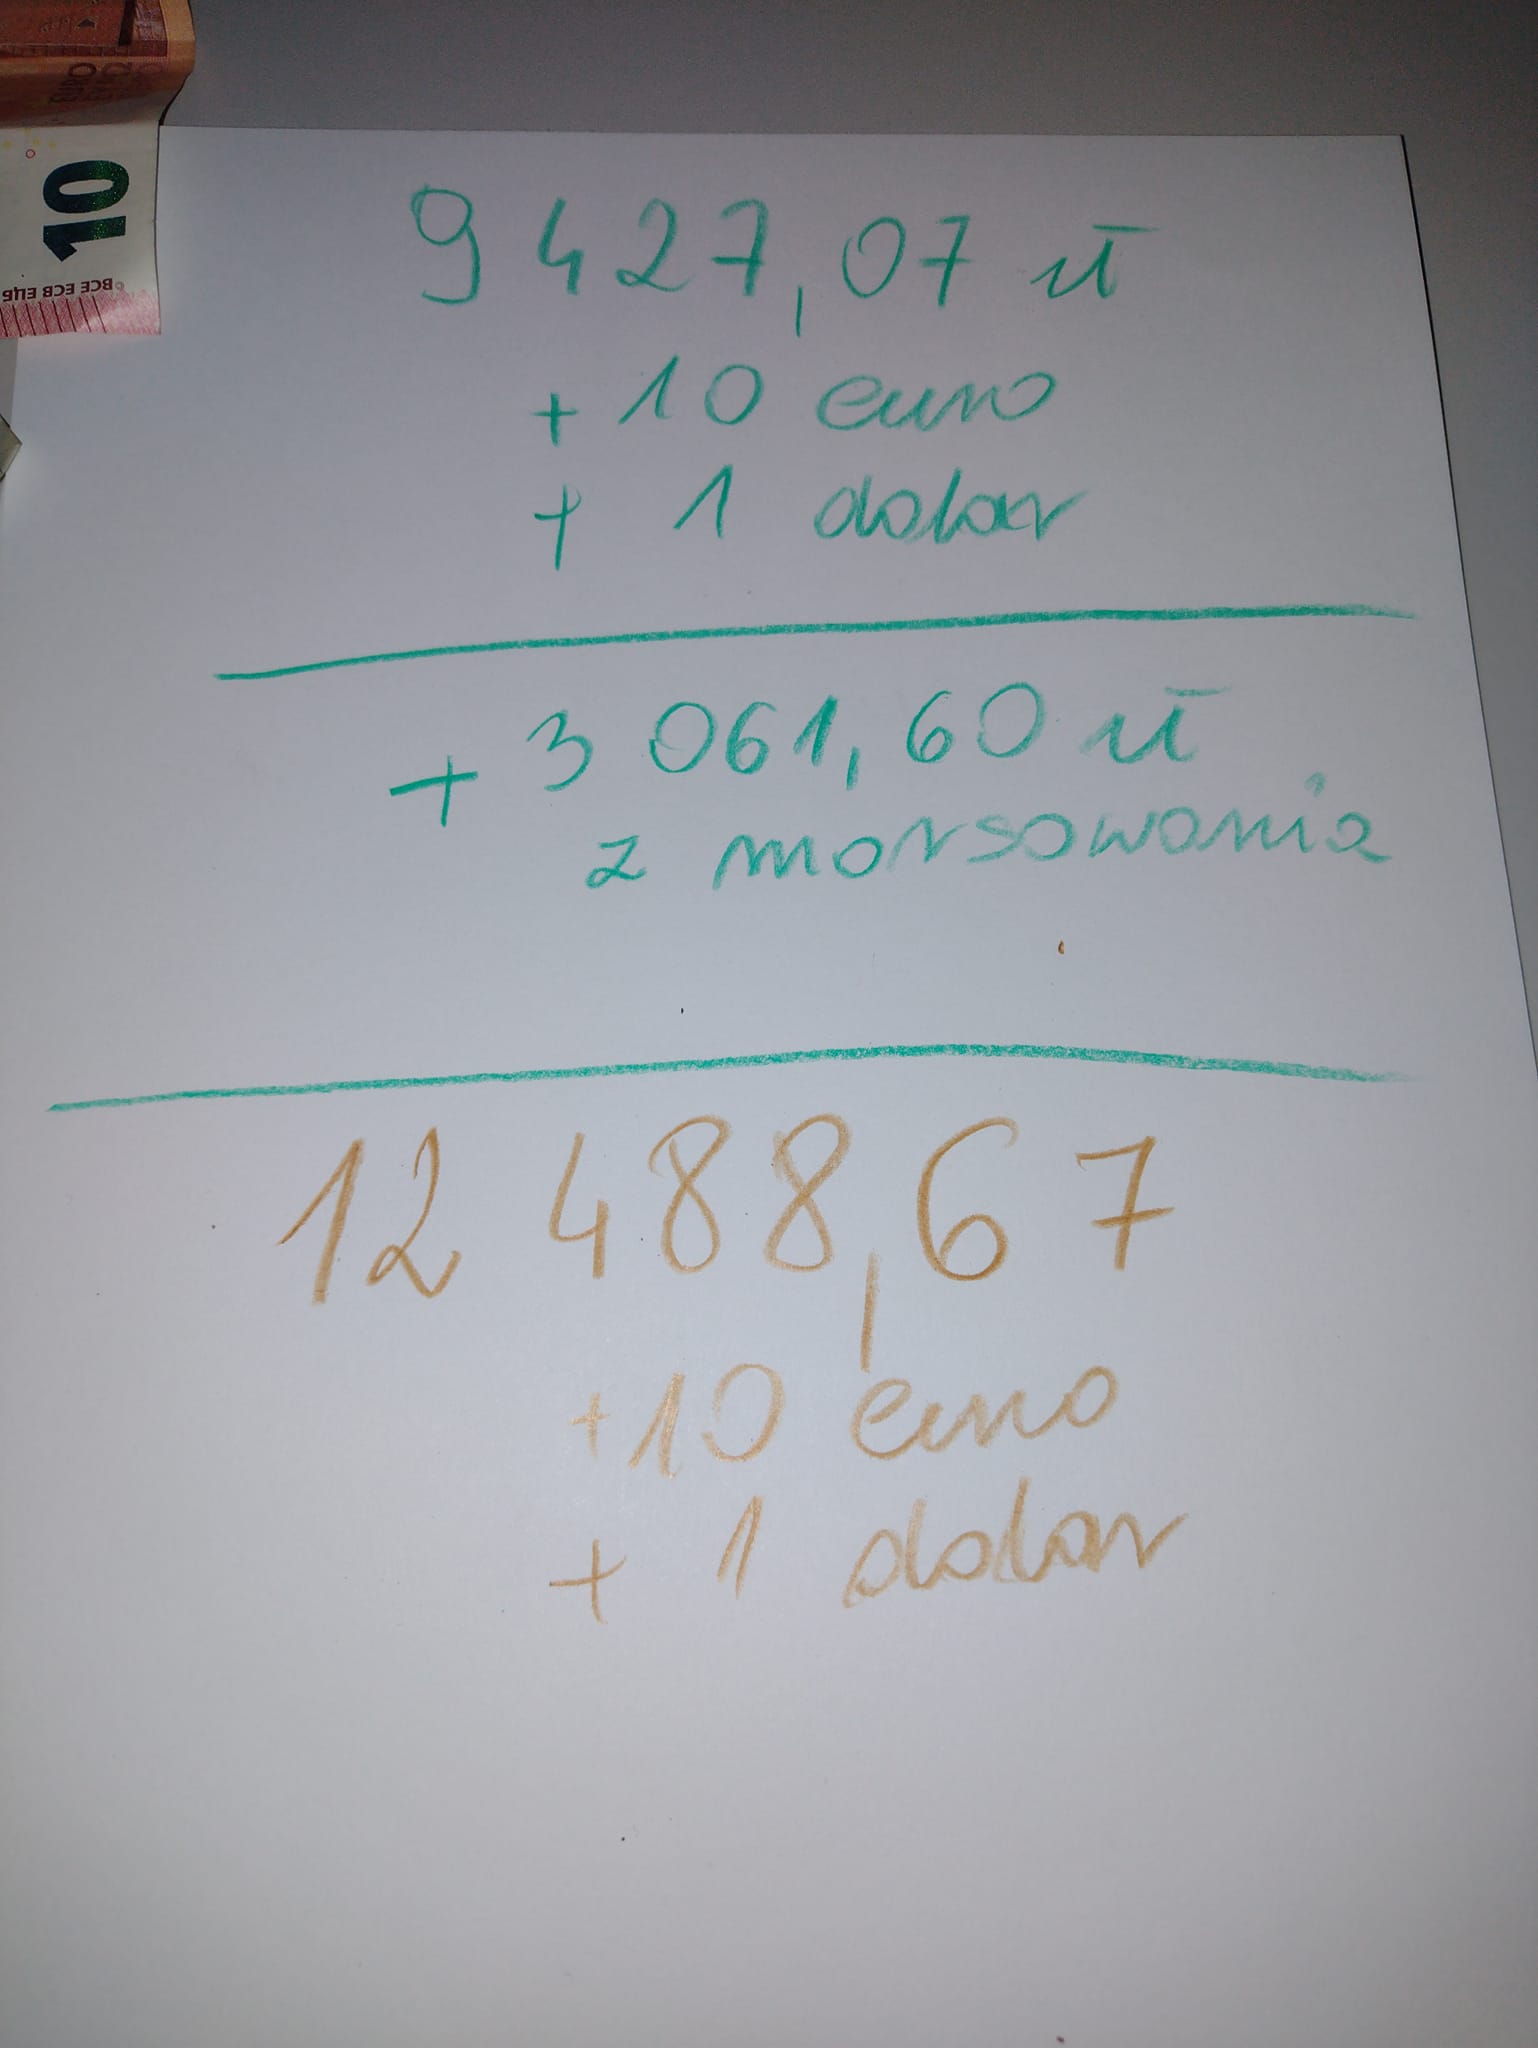 10
BCE ECB ЕЦБ
EURO
9 427,07 zł
+ 10 euro
+ 1 dolar
+ 3 061,60 zł
z morsowania
12 488,67
+10 euro
+ 1 dolar